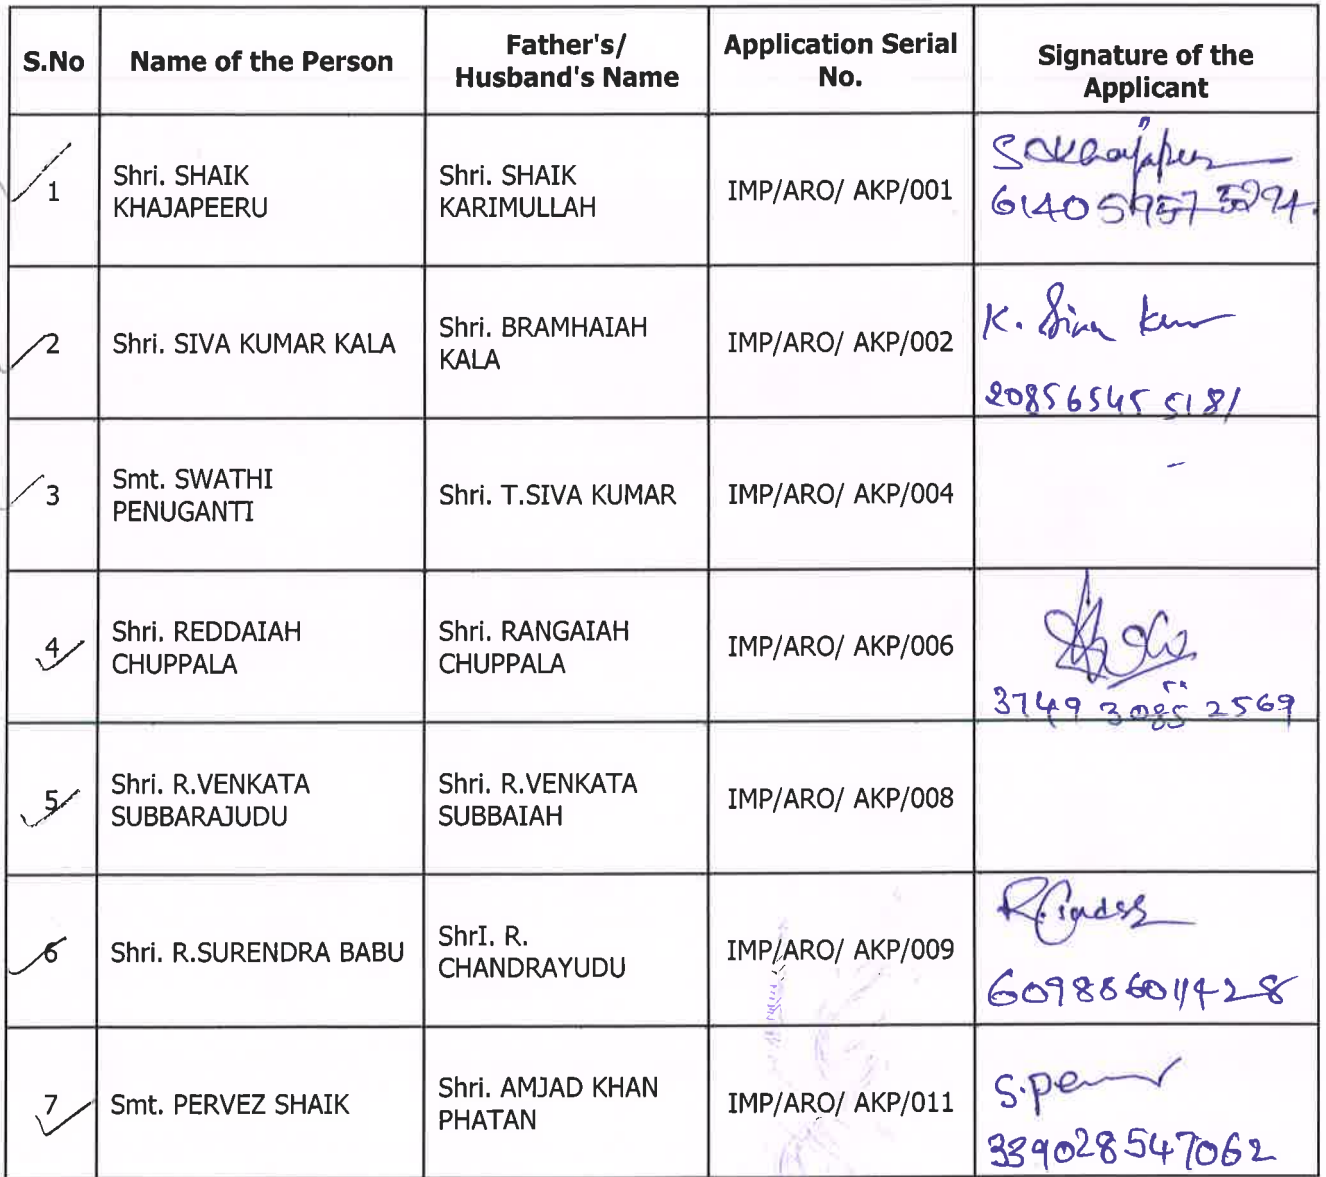 S.No Name of the Person Father's/ Husband's Name Application Serial No. Signature of the Applicant
1 Shri. SHAIK KHAJAPEERU Shri. SHAIK KARIMULLAH IMP/ARO/ AKP/001
2 Shri. SIVA KUMAR KALA Shri. BRAMHAIAH KALA IMP/ARO/ AKP/002 K. Siva
3 Smt. SWATHI PENUGANTI Shri. T.SIVA KUMAR IMP/ARO/ AKP/004 -
4 Shri. REDDAIAH CHUPPALA Shri. RANGAIAH CHUPPALA IMP/ARO/ AKP/006
3749 3085 2569
5 Shri. R.VENKATA SUBBARAJUDU Shri. R.VENKATA SUBBAIAH IMP/ARO/ AKP/008
6 Shri. R.SURENDRA BABU ShrI. R. CHANDRAYUDU IMP/ARO/ AKP/009
7 Smt. PERVEZ SHAIK Shri. AMJAD KHAN PHATAN IMP/ARO/ AKP/011
339028547062